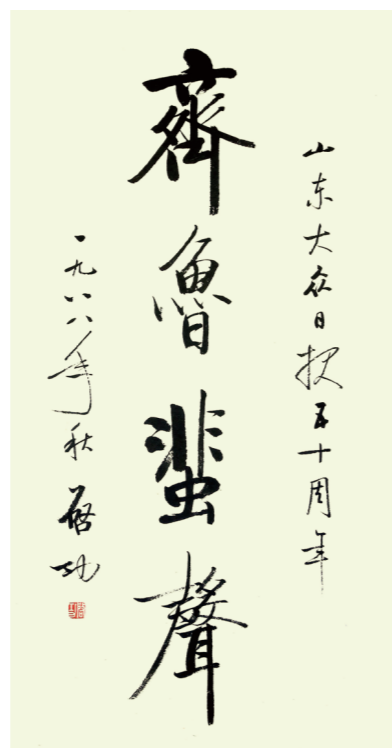 山东大众日报五十周年
齊魯蜚聲
一九八八年秋 启功